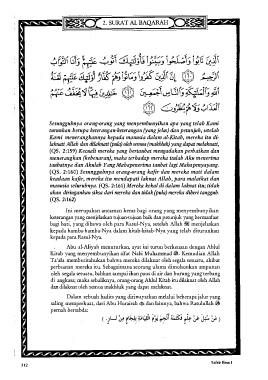 2. SURAT AL BAQARAH
الَّذِينَ تَابُوا وَأَصْلَحُوا وَبَيَّنُوا فَأُولَٰئِكَ أَتُوبُ عَلَيْهِمْ وَأَنَا التَّوَّابُ
الرَّحِيمُ ۝ إِنَّ الَّذِينَ كَفَرُوا وَمَاتُوا وَهُمْ كُفَّارٌ أُولَٰئِكَ عَلَيْهِمْ لَعْنَةُ
اللَّهِ وَالْمَلَائِكَةِ وَالنَّاسِ أَجْمَعِينَ ۝ خَالِدِينَ فِيهَا لَا يُخَفَّفُ عَنْهُمُ
الْعَذَابُ وَلَا هُمْ يُنْظَرُونَ ۝
Sesungguhnya orang-orang yang menyembunyikan apa yang telah Kami
turunkan berupa keterangan-keterangan (yang jelas) dan petunjuk, setelah
Kami menerangkannya kepada manusia dalam al-Kitab, mereka itu di-
laknati Allah dan dilaknati (pula) oleh semua (makhluk) yang dapat melaknati,
(QS. 2:159) Kecuali mereka yang bertaubat mengadakan perbaikan dan
menerangkan (kebenaran), maka terhadap mereka itulah Aku menerima
taubatnya dan Akulah Yang Mahapenerima taubat lagi Mahapenyayang.
(QS. 2:160) Sesungguhnya orang-orang kafir dan mereka mati dalam
keadaan kafir, mereka itu mendapati laknat Allah, para malaikat dan
manusia seluruhnya. (QS. 2:161) Mereka kekal di dalam laknat itu; tidak
akan diringankan siksa dari mereka dan tidak (pula) mereka diberi tangguh.
(QS. 2:162)
Ini merupakan ancaman keras bagi orang yang menyembunyikan
keterangan yang menjelaskan tujuan-tujuan baik dan petunjuk yang bermanfaat
bagi hati, yang dibawa oleh para Rasul-Nya, setelah Allah menjelaskan
kepada hamba-hamba-Nya dalam kitab-kitab-Nya yang telah diturunkan
kepada para Rasul-Nya.
Abu al-Aliyah menuturkan, ayat ini turun berkenaan dengan Ahlul
Kitab yang menyembunyikan sifat Nabi Muhammad ﷺ. Kemudian Allah
Ta'ala memberitahukan bahwa mereka dilaknat oleh segala sesuatu, akibat
perbuatan mereka itu. Sebagaimana seorang ulama dimohonkan ampunan
oleh segala sesuatu, bahkan sampai ikan paus di air dan burung yang terbang
di angkasa; maka sebaliknya, orang-orang Ahlul Kitab itu dilaknat oleh Allah
dan dilaknat oleh semua makhluk yang dapat melaknat.
Dalam sebuah hadits yang diriwayatkan melalui beberapa jalur yang
saling memperkuat, dari Abu Hurairah dan lainnya, bahwa Rasulullah ﷺ
pernah bersabda:
( مَنْ سُئِلَ عَنْ عِلْمٍ فَكَتَمَهُ أُلْجِمَ يَوْمَ الْقِيَامَةِ بِلِجَامٍ مِنْ نَارٍ . )
312
Tafsir Ibnu